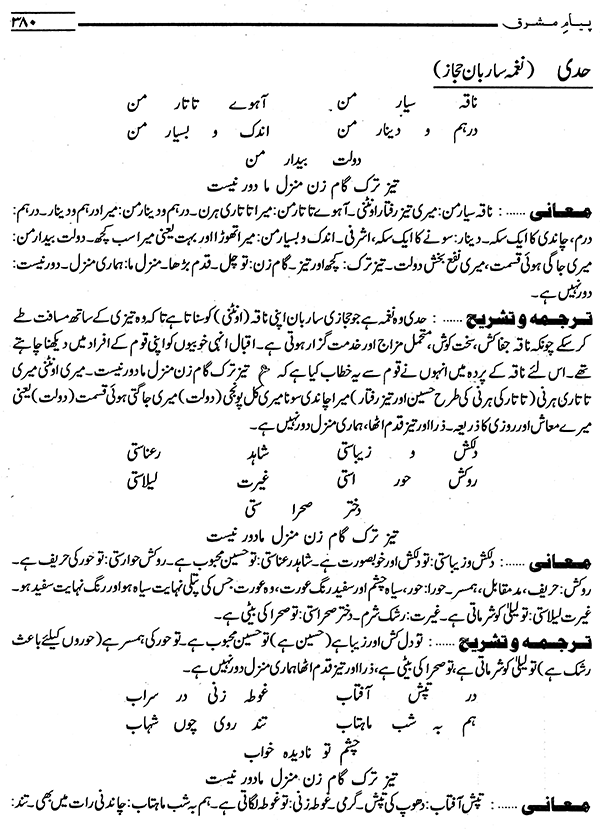 پیامِ مشرق ۳۸۰
حدی (نغمہ ساربان حجاز)
ناقہ سیار من آہوے تاتار من
درہم و دینار من اندک و بسیار من
دولت بیدار من
تیز ترک گام زن منزل ما دور نیست
معانی ...... : ناقہ سیار من: میری تیز رفتار اونٹنی۔ آہوے تاتار من: میرا تاتاری ہرن۔ درہم و دینار من: میرا درہم و دینار۔ درہم:
درم، چاندی کا ایک سکہ۔ دینار: سونے کا ایک سکہ، اشرفی۔ اندک و بسیار من: میرا تھوڑا اور بہت یعنی میرا سب کچھ۔ دولت بیدار من:
میری جاگی ہوئی قسمت، میری نفع بخش دولت۔ تیز ترک: کچھ اور تیز۔ گام زن: تو چل۔ قدم بڑھا۔ منزل ما: ہماری منزل۔ دور نیست:
دور نہیں ہے۔
ترجمہ و تشریح ...... : حدی وہ نغمہ ہے جو حجازی ساربان اپنی ناقہ (اونٹنی) کو سناتا ہے تاکہ وہ تیزی کے ساتھ مسافت طے
کر سکے چونکہ ناقہ جفاکش، سخت کوش، متحمل مزاج اور خدمت گزار ہوتی ہے۔ اقبال انہی خوبیوں کو اپنی قوم کے افراد میں دیکھنا چاہتے
تھے۔ اس لئے ناقہ کے پردہ میں انہوں نے قوم سے یہ خطاب کیا ہے کہ تیز ترک گام زن منزل ما دور نیست۔ میری اونٹنی میری
تاتاری ہرنی (تاتار کی ہرنی کی طرح حسین اور تیز رفتار) میرا چاندی سونا میری کل پونجی (دولت) میری جاگتی ہوئی قسمت (دولت) یعنی
میرے معاش اور روزی کا ذریعہ۔ ذرا اور تیز قدم اٹھا، ہماری منزل دور نہیں ہے۔
دلکش و زیباستی شاہد رعناستی
روکش حور استی غیرت لیلاستی
دختر صحرا ستی
تیز ترک گام زن منزل مادور نیست
معانی ...... : دلکش و زیباستی: تو دلکش اور خوبصورت ہے۔ شاہد رعناستی: تو حسین محبوب ہے۔ روکش حوارستی: تو حور کی حریف ہے۔
روکش: حریف، مد مقابل، ہمسر۔ حورا: حور، سیاہ چشم اور سفید رنگ عورت، وہ عورت جس کی پتلی نہایت سیاہ ہو اور رنگ نہایت سفید ہو۔
غیرت لیلاستی: تو لیلیٰ کو شرماتی ہے۔ غیرت: رشک شرم۔ دختر صحراستی: تو صحرا کی بیٹی ہے۔
ترجمہ و تشریح ...... : تو دل کش اور زیبا ہے (حسین ہے) تو حسین محبوب ہے۔ تو حور کی ہمسر ہے (حوروں کیلئے باعث
رشک ہے) تو لیلیٰ کو شرماتی ہے، تو صحرا کی بیٹی ہے، ذرا اور تیز قدم اٹھا ہماری منزل دور نہیں ہے۔
در تپش آفتاب غوطہ زنی در سراب
ہم بہ شب ماہتاب تند روی چوں شہاب
چشم تو نادیدہ خواب
تیز ترک گام زن منزل مادور نیست
معانی ...... : تپش آفتاب: دھوپ کی تپش۔ گرمی۔ غوطہ زنی: تو غوطہ لگاتی ہے۔ ہم بہ شب ماہتاب: چاندنی رات میں بھی۔ تند: